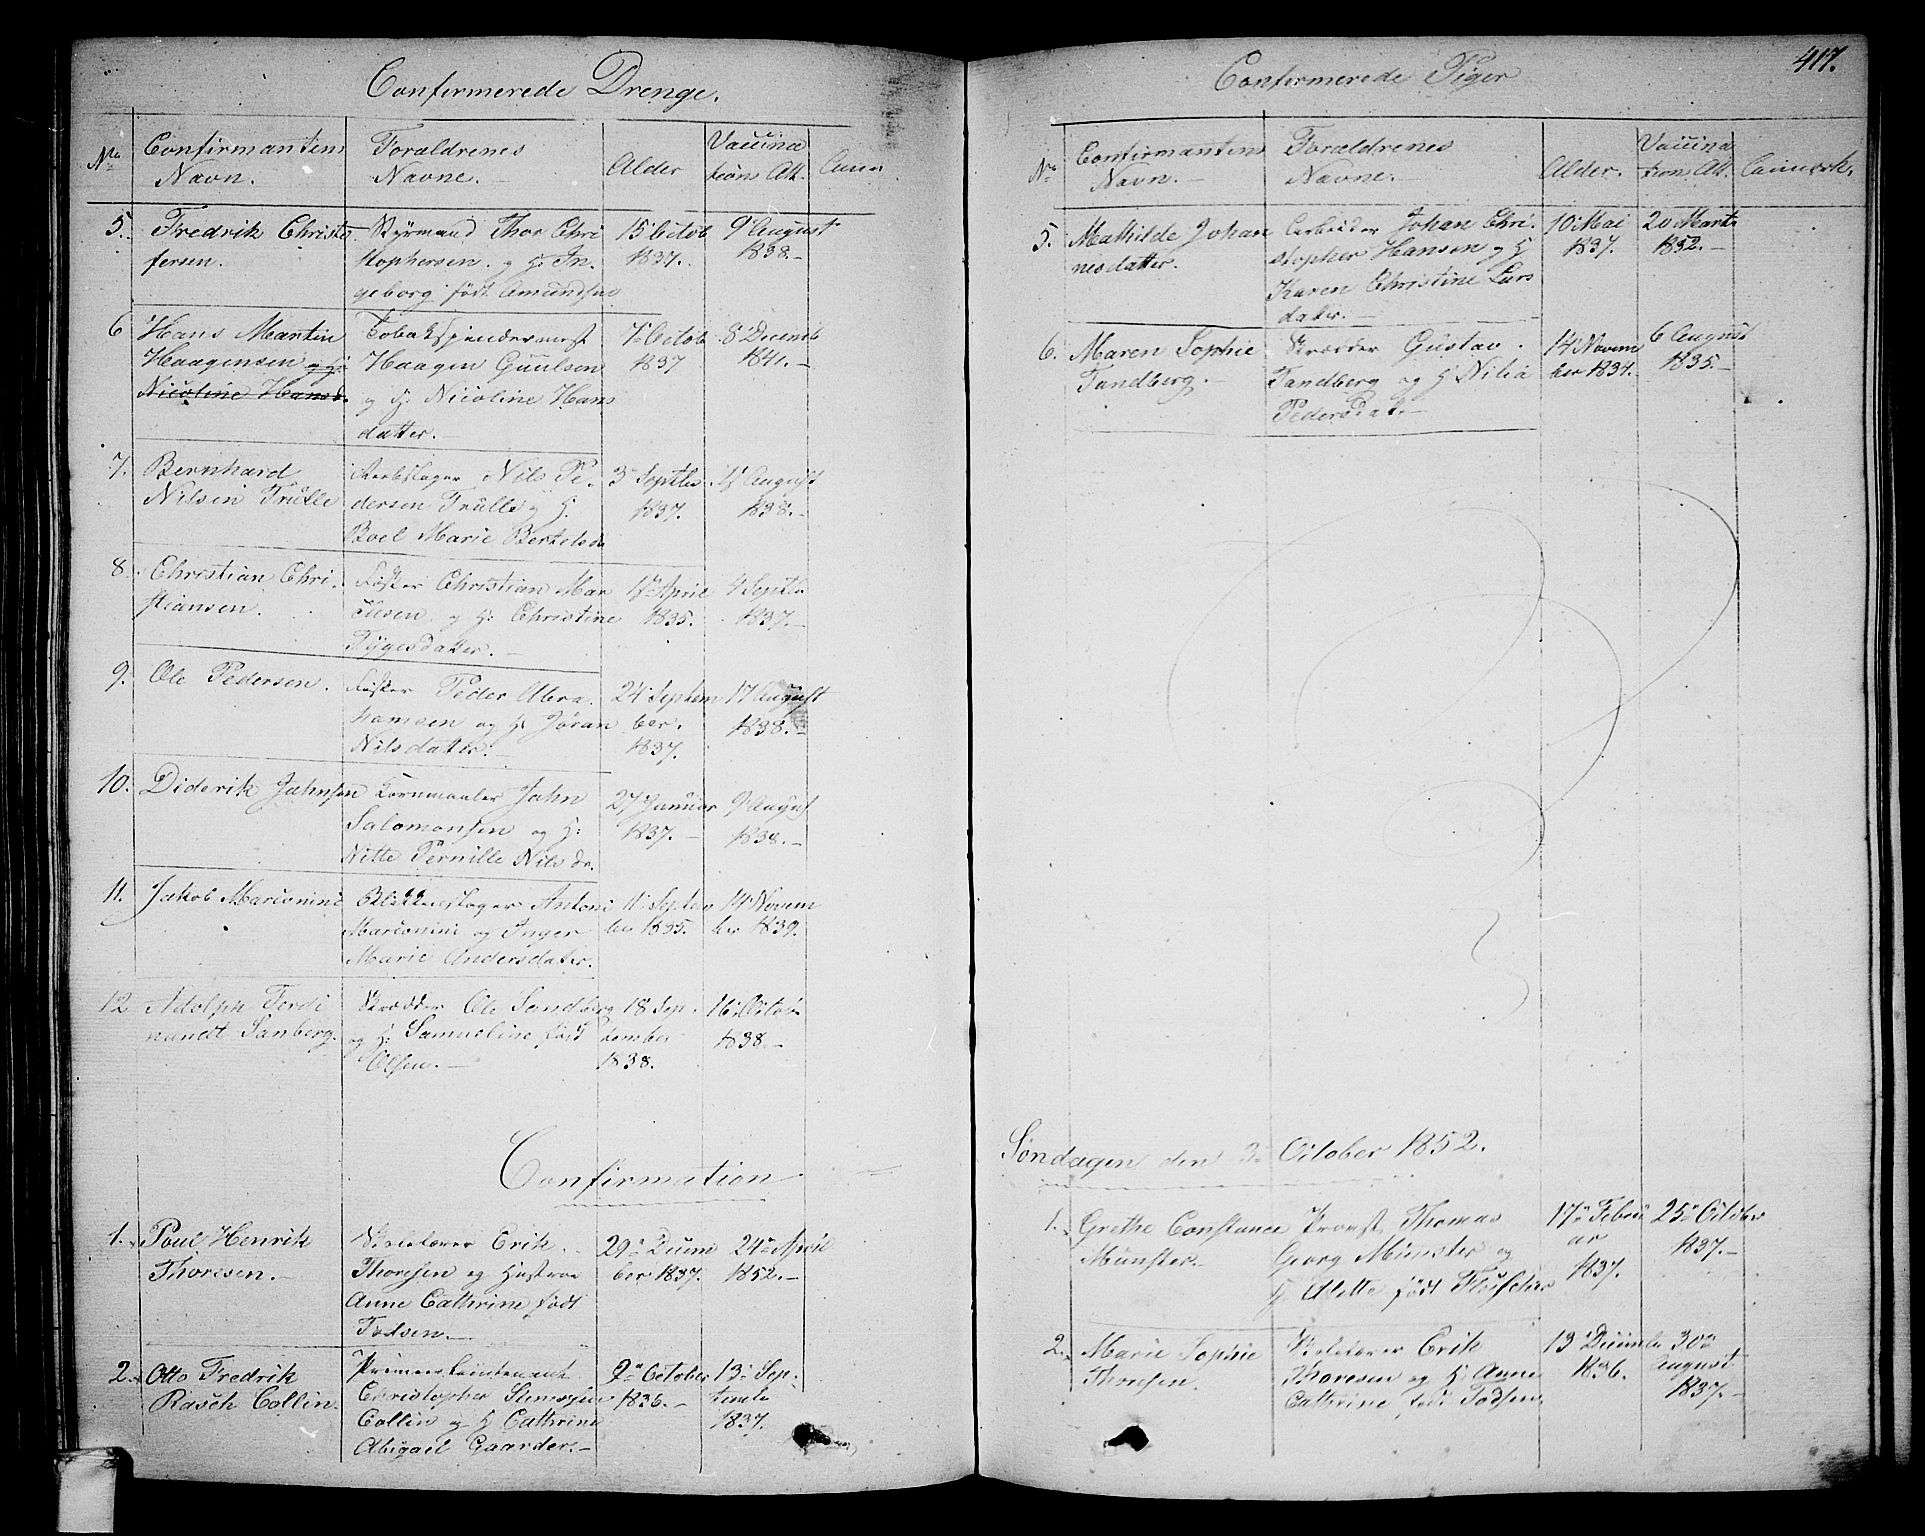 Confirmerede Drenge.
No
Confirmantens
Navn.
Forældrenes
Navne.
Alder
Vaccina
tions Att.
5.
Fredrik Christo
fersen.
Styrmand Thor Chri
stophersen. og H: In-
geborg født Amundsen
15 Octob
1837.
9 August
1838.-
6
Hans Martin
Haagensen og H:
Nicoline Hansd.
Tobakspindermest
Haagen Guulsen
og H: Nicoline Hans
datter.-
7 Octob
1837
8 Decemb
1841.-
7.
Bernhard
Nilsen Trulle
Nils Pe-
dersen Trulle og H.
Boel Marie Bertelsd.
3 Septbr
1837.
August
1838.-
8.
Christian Chri-
stiansen.
Fisker Christian Mar
cusen og H: Christine
Tygesdatter.-
17 April
1835.
4 Septbr
1837.-
9.
Ole Pedersen.
Fisker Peder Abra-
hamsen og H: Jøran
Nilsdatter.
24 Septem
ber.
1837.
17 August
1838.-
10.
Diderik Jahnsen
Kornmaaler Jahn
Salomonsen og H:
Nitte Pernille Nilsdr.
27 Januar
1837.-
9 August
1838.-
11.
Jakob Marconini
Blikkenslager Antoni
Marconini og Inger
Marie Andersdatter.
11 Septem
ber 1835.
14 Novem
ber 1839.
12
Adolph Ferdi
nandt Sanberg.
Skrædder Ole Sandberg
og H: Samueline født
Olsen.-
18 Sep-
tember
1838.
16 Octob.
1838.-
Confirmation
1.
Poul Henrik
Thoresen.-
Skolelærer Erik
Thoresen og Hustroe
Anne Cathrine født
Todsen.-
29 Decem
ber 1837.
24 April
1852.-
2.
Otto Fredrik
Rasch Collin.
Premierlieutenant
Christopher
Collin og H Cathrine
Abigael Gaarder.-
2 October
1836.-
13 Sep-
tembr
1837.
Confirmerede Piger
417.
No
Confirmantens
Navn.-
Forældrenes
Navne.-
Alder.
Vaccina
tion Att.
Anmærk.
5.
Mathilde Johan
nesdatter.
Arbeider Johan Chri-
stopher Hansen og H
Karen Christine Lars
datter.-
10 Mai
1837.
20 Marts
1852.-
6.
Maren Sophie
Tandberg.-
Skrædder Gustav
Tandberg og H Nilia
Pedersdat.-
14 Novem
ber 1837.
6 August
1835.-
Søndagen den 3 October 1852.
1.
Grethe Constance
Münster.-
Provst Thomas
Georg Münster og
H Alette født Fleischer
17 Febru
ar
1837.
25 October
1837.-
2.
Marie Sophie
Thoresen.
Skolelærer Erik
Thoresen og H: Anne
Cathrine født Todsen.
13 Decemb
1836.
30
August
1837.-